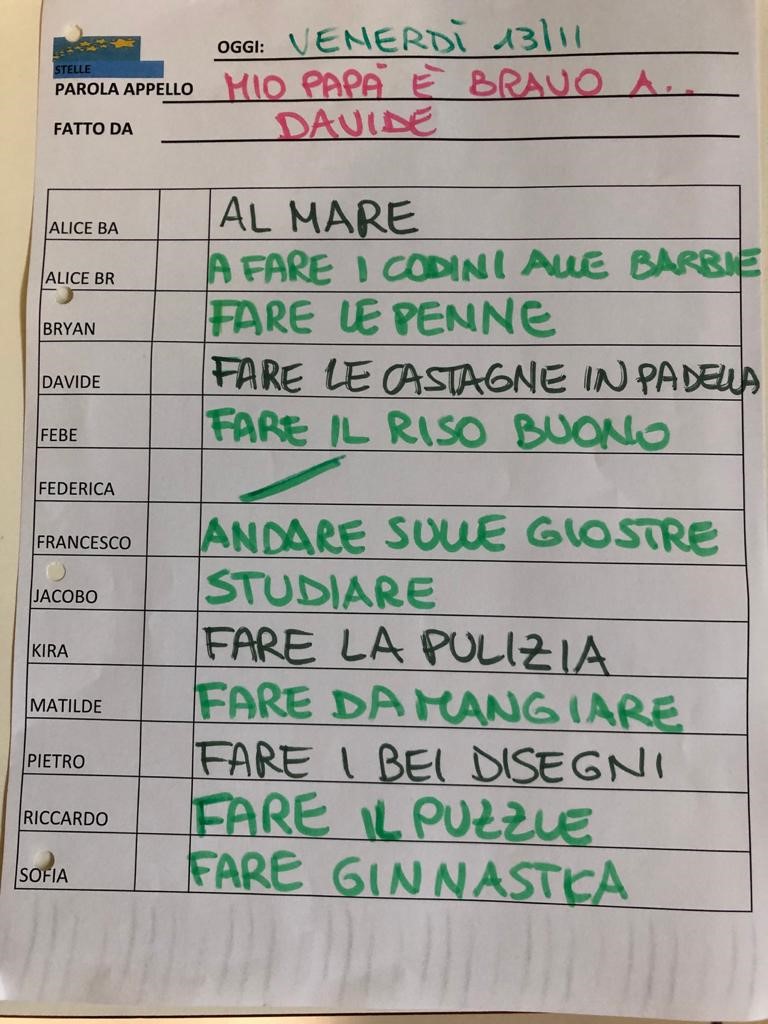 STELLE
OGGI: VENERDÌ 13/11
PAROLA APPELLO MIO PAPÀ È BRAVO A..
FATTO DA DAVIDE
ALICE BA AL MARE
ALICE BR A FARE I CODINI ALLE BARBIE
BRYAN FARE LE PENNE
DAVIDE FARE LE CASTAGNE IN PADELLA
FEBE FARE IL RISO BUONO
FEDERICA
FRANCESCO ANDARE SULLE GIOSTRE
JACOBO STUDIARE
KIRA FARE LA PULIZIA
MATILDE FARE DA MANGIARE
PIETRO FARE I BEI DISEGNI
RICCARDO FARE IL PUZZLE
SOFIA FARE GINNASTICA